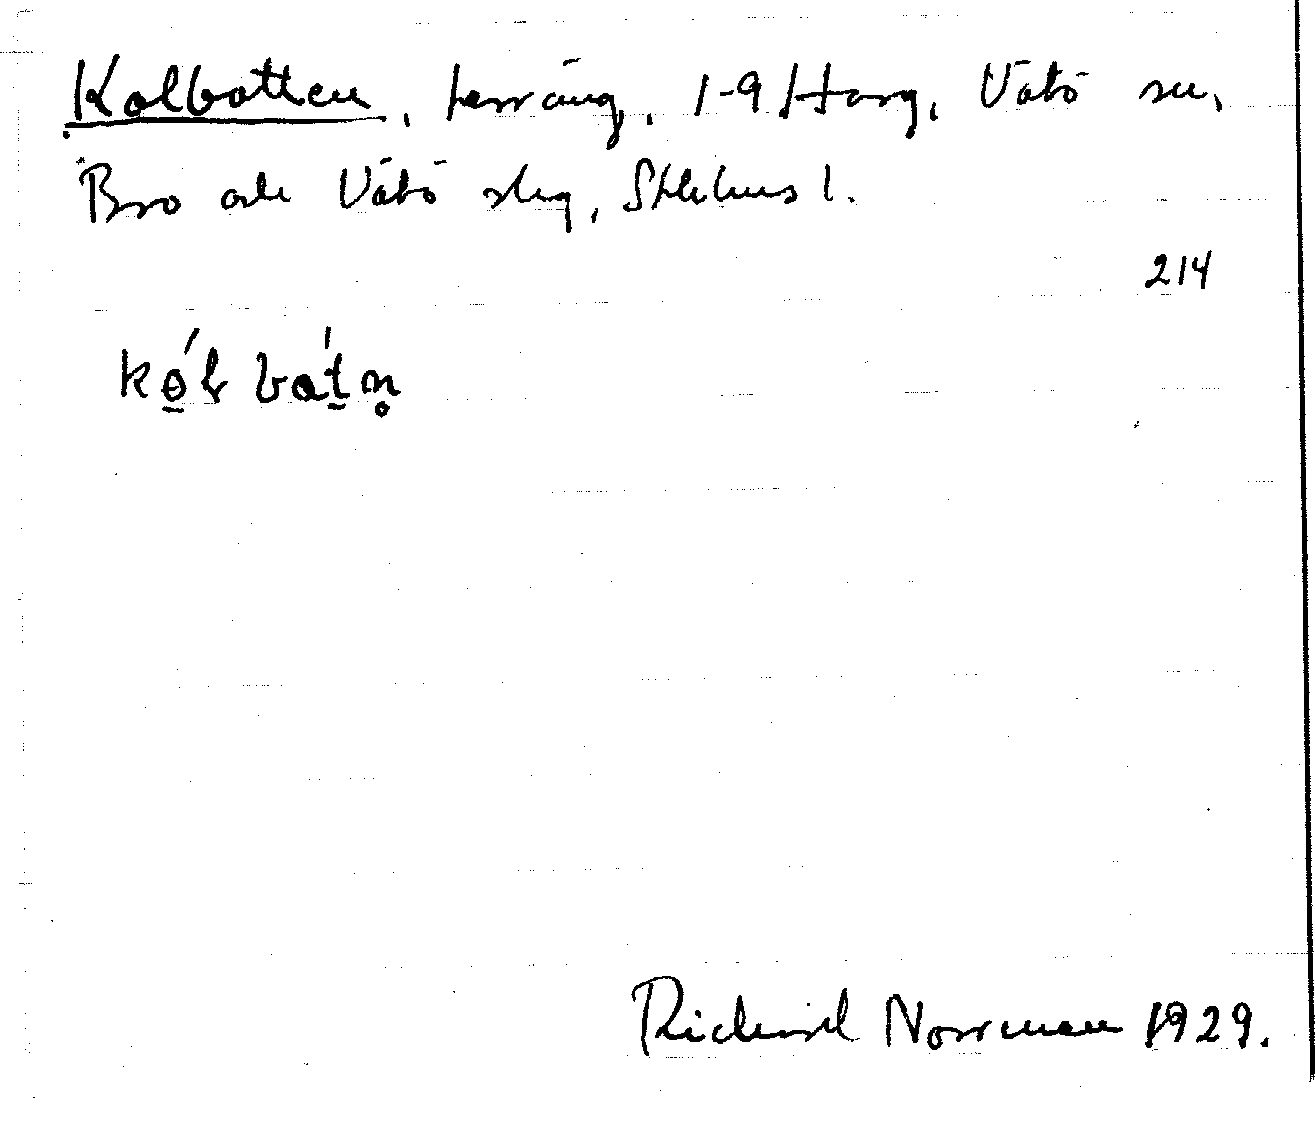 Kolbotten, terräng, 1-9 Harg, Vätö sn,
Bro och Vätö slg, Sthlms l.
214
kǫ́l bát̠n̥
Richard Norrman 1929.